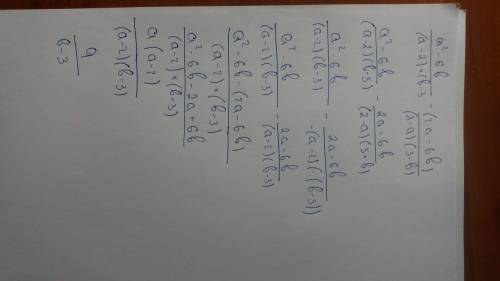 a² 6b / (a-2)×(b-3 - (2a-6b) / (2-a)(3-b)
a²-6b / (a-2)(b-3) - 2a-6b / (2-a)(3-b)
a²-6b / (a-2)(b-3) - 2a-6b / -(a-2)(-(b-3))
a²-6b / (a-2)(b-3) - 2a-6b / (a-2)(b-3)
a²-6b-(2a-6b) / (a-2)×(b-3)
a²-6b-2a+6b / (a-2)×(b-3)
a(a-2) / (a-2)(b-3)
a / b-3